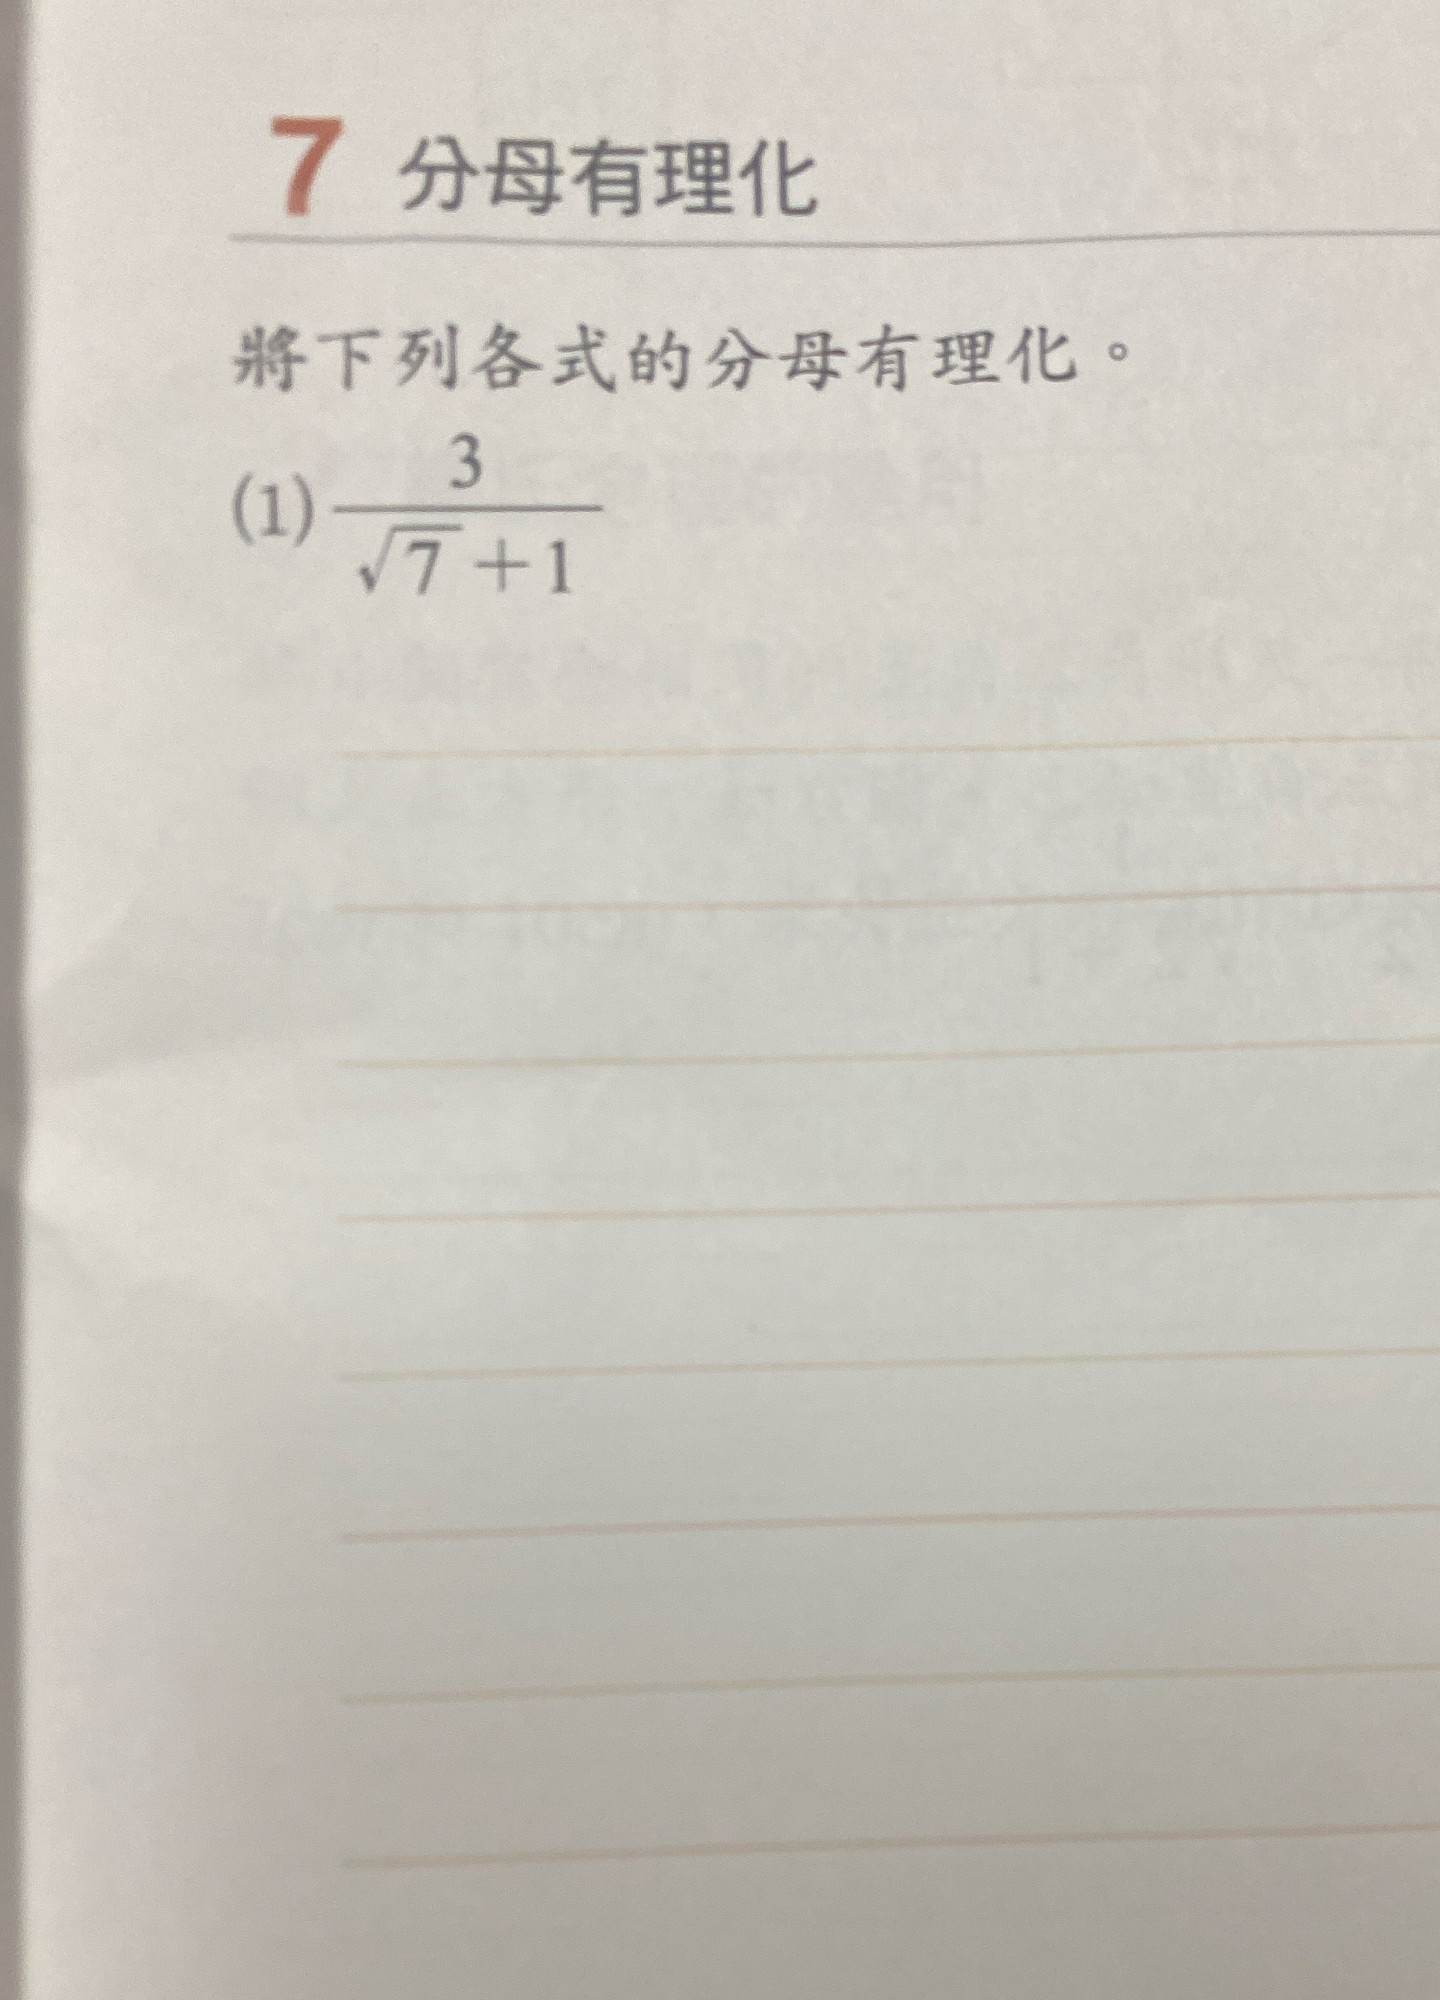 7 分母有理化
將下列各式的分母有理化。
(1) 3/(√7+1)